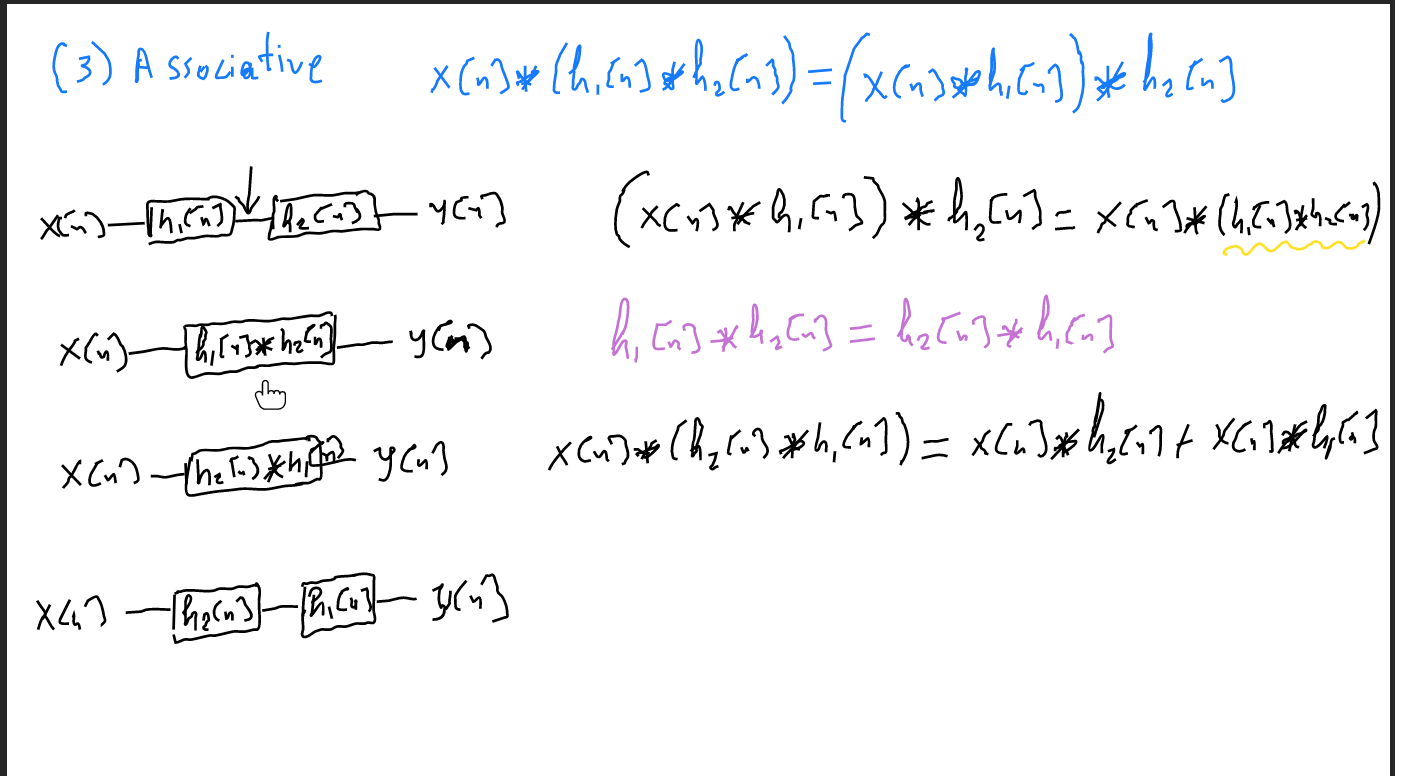 (3) Associative x[n]*(h₁[n]*h₂[n])=(x[n]*h₁[n])*h₂[n]
x[n] h₁[n] h₂[n] y[n] (x[n]*h₁[n])*h₂[n]=x[n]*(h₁[n]*h₂[n])
x[n] h₁[n]*h₂[n] y[n] h₁[n]*h₂[n]=h₂[n]*h₁[n]
x[n] h₂[n]*h₁[n] y[n] x[n]*(h₂[n]*h₁[n])=x[n]*h₂[n]+x[n]*h₁[n]
x[n] h₂[n] h₁[n] y[n]